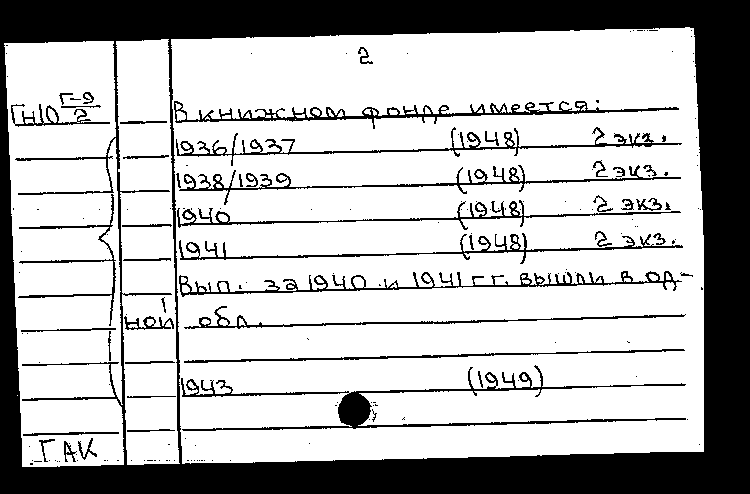 2
ГнЮ Г-9/2 В книжном фонде имеется:
1936/1937 (1948) 2 экз.
1938/1939 (1948) 2 экз.
1940 (1948) 2 экз.
1941 (1948) 2 экз.
Вып. за 1940 и 1941 гг. вышли в од-
ной обл.
1943 (1949)
ГАК